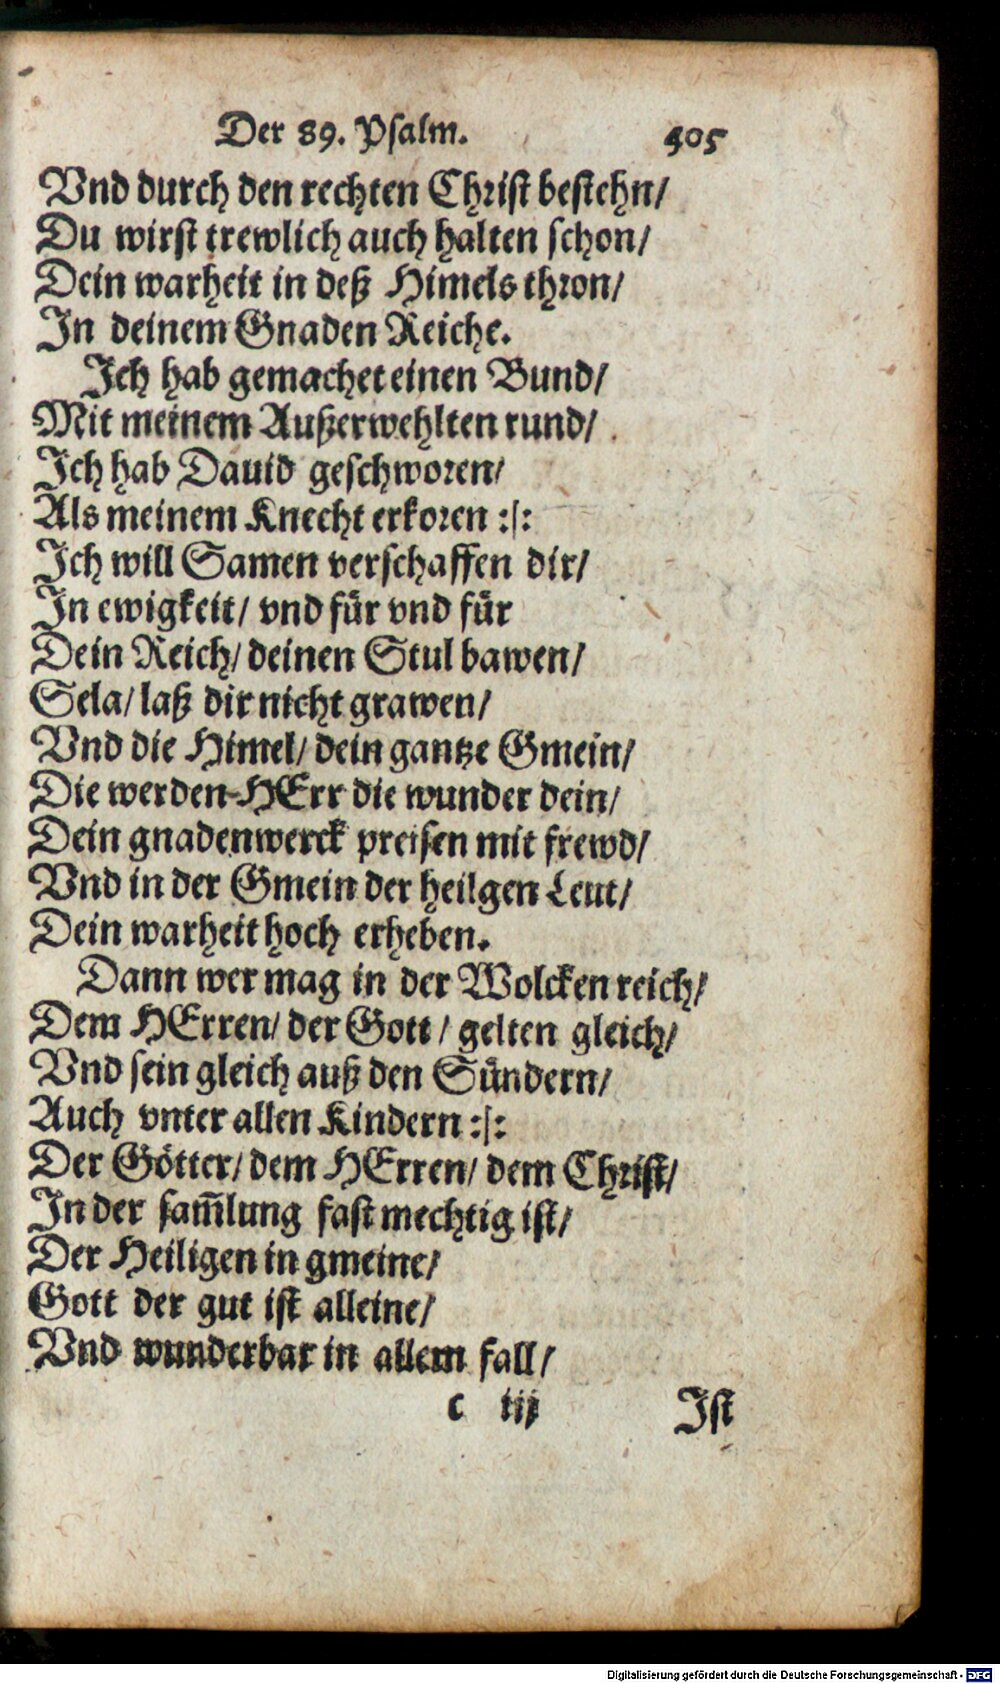 Der 89. Psalm. 405
Vnd durch den rechten Christ bestehn/
Du wirst trewlich auch halten schon/
Dein warheit in deß Himels thron/
In deinem Gnaden Reiche.
Ich hab gemachet einen Bund/
Mit meinem Außerwehlten rund/
Ich hab Dauid geschworen/
Als meinem Knecht erkoren :|:
Ich will Samen verschaffen dir/
In ewigkeit/ vnd fuͤr vnd fuͤr
Dein Reich/ deinen Stul bawen/
Sela/ laß dir nicht grawen/
Vnd die Himel/ dein gantze Gmein/
Die werden HErr die wunder dein/
Dein gnadenwerck preisen mit frewd/
Vnd in der Gmein der heilgen Leut/
Dein warheit hoch erheben.
Dann wer mag in der Wolcken reich/
Dem HErren/ der Gott/ gelten gleich/
Vnd sein gleich auß den Suͤndern/
Auch vnter allen Kindern :|:
Der Goͤtter/ dem HErren/ dem Christ/
In der sam̃lung fast mechtig ist/
Der Heiligen in gmeine/
Gott der gut ist alleine/
Vnd wunderbar in allem fall/
c iij Ist
Digitalisierung gefördert durch die Deutsche Forschungsgemeinschaft - DFG